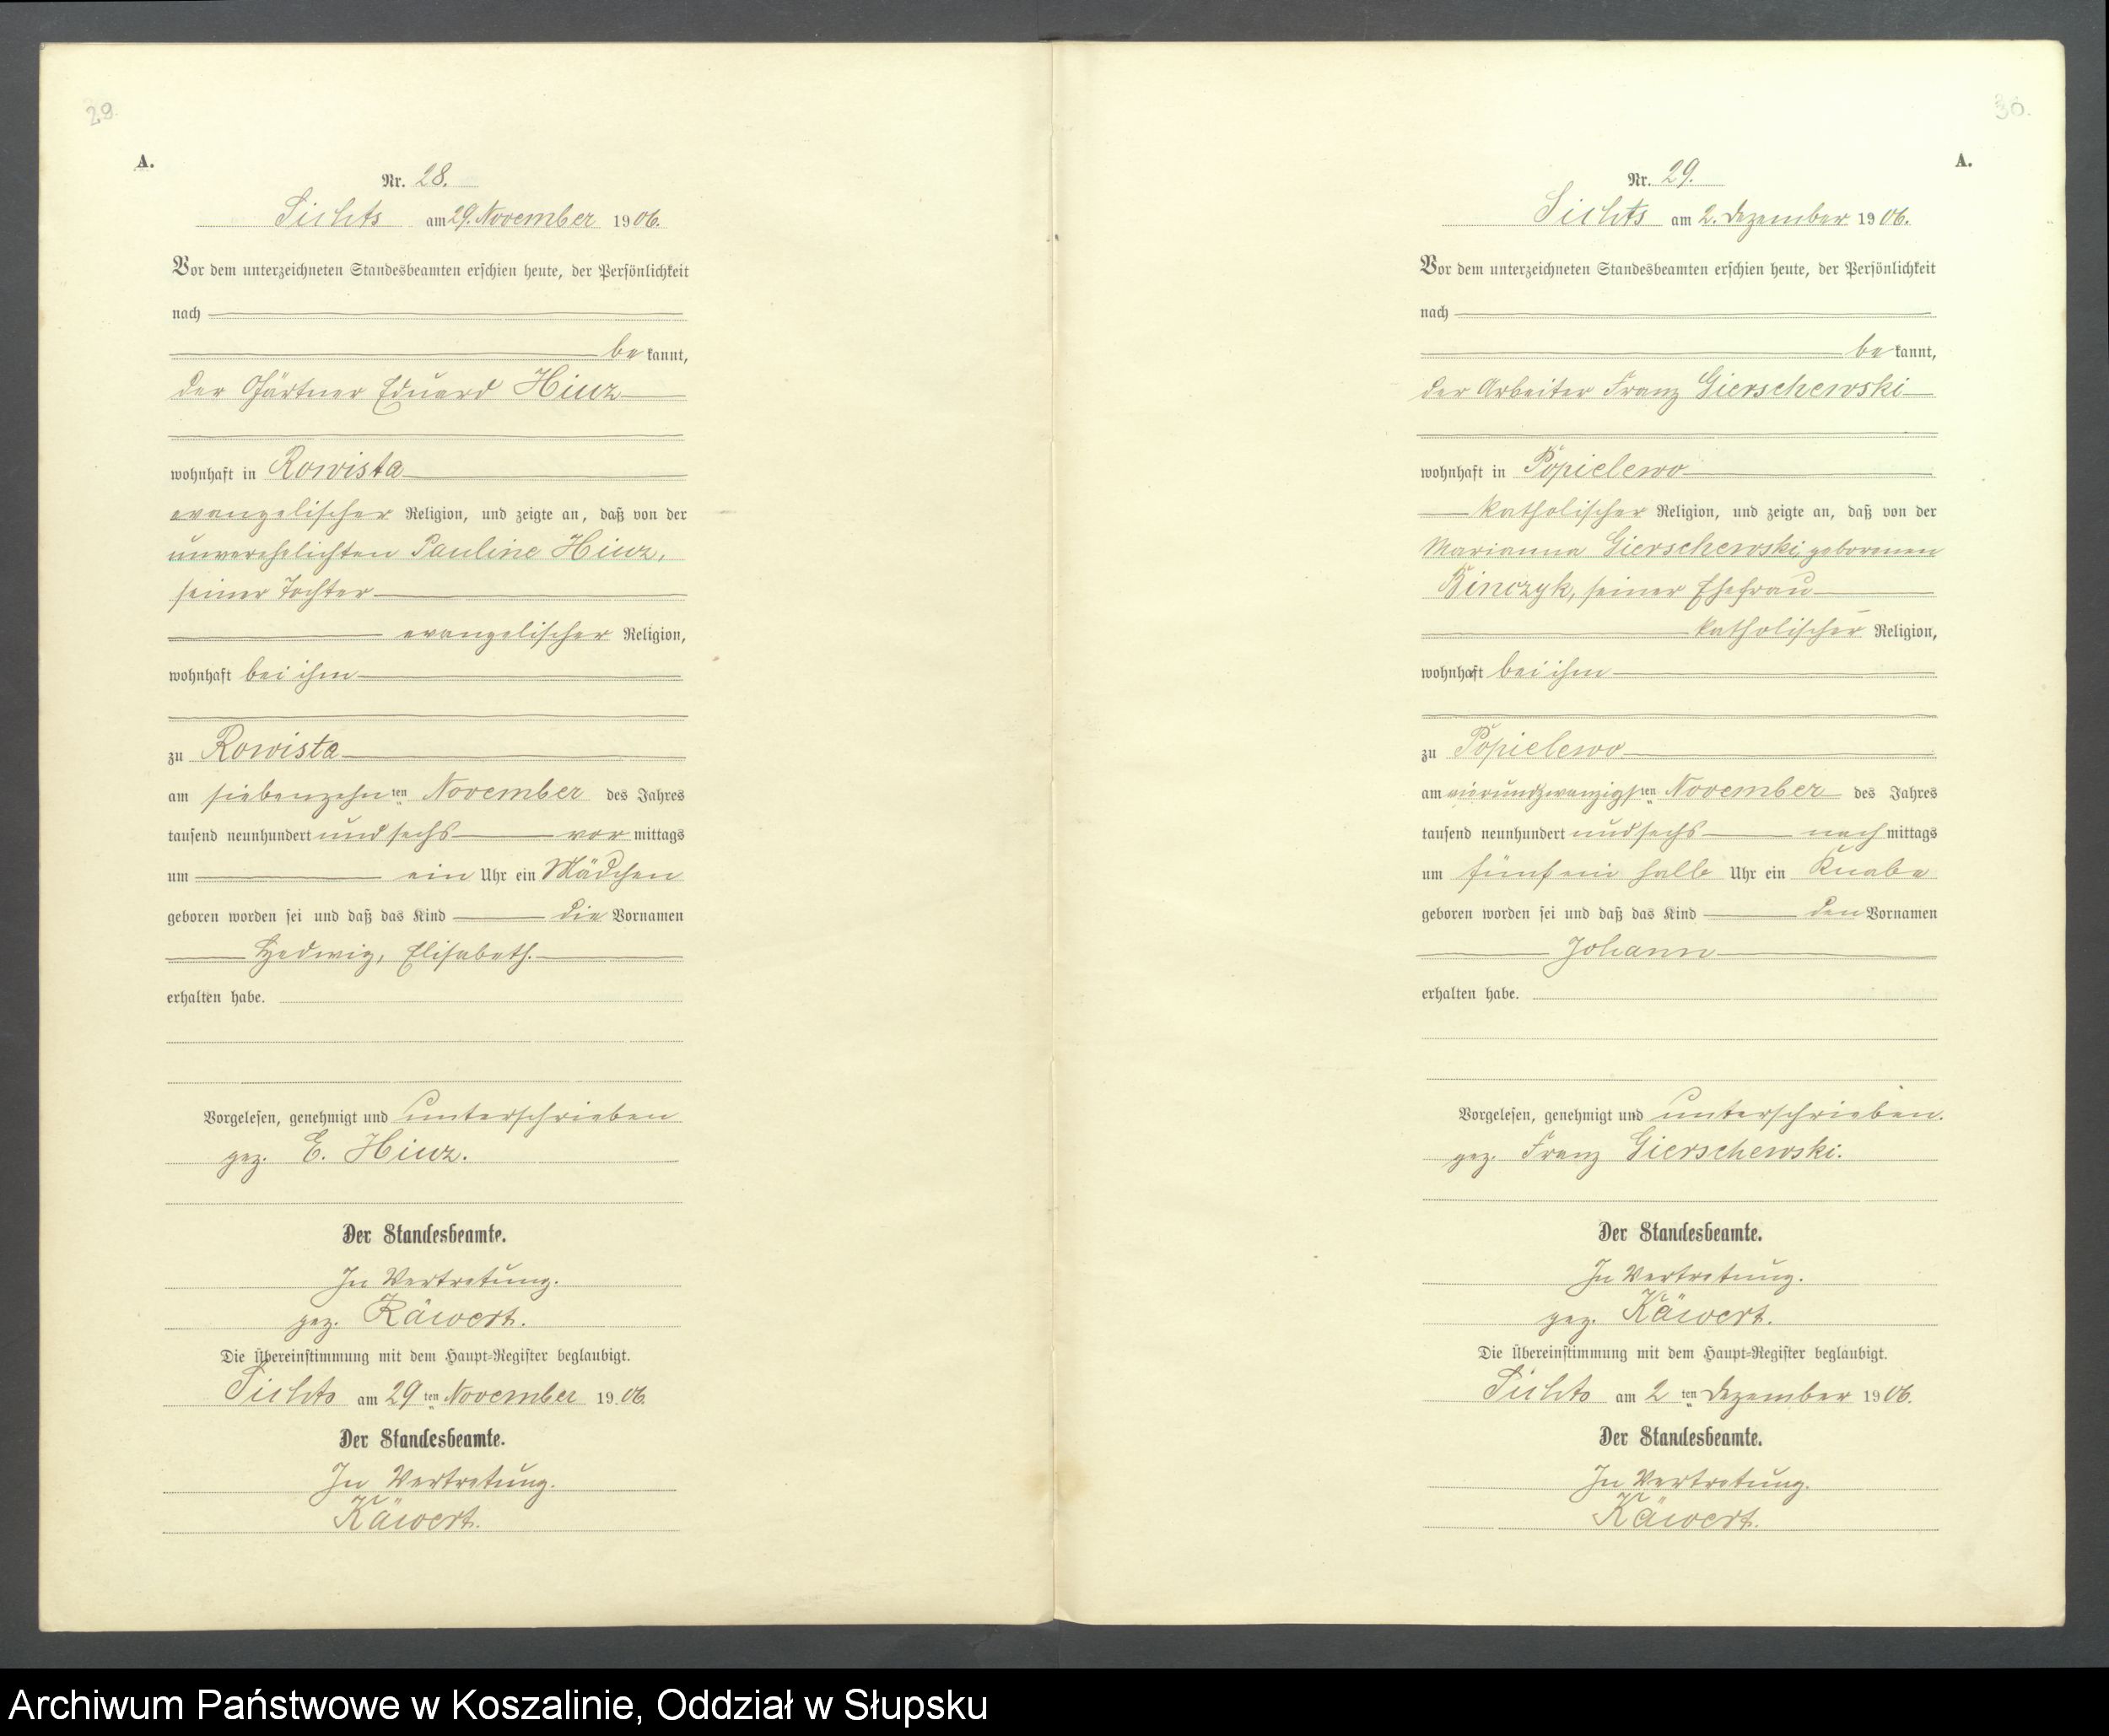 29.
A.
Nr. 28.
Lichts am 29. November 1906.
Vor dem unterzeichneten Standesbeamten erschien heute, der Persönlichkeit
nach
be kannt,
der Gärtner Eduard Hinz
wohnhaft in Rowista
evangelischer Religion, und zeigte an, daß von der
unverehelichten Pauline Hinz,
seiner Tochter
evangelischer Religion,
wohnhaft bei ihm
zu Rowista
am siebenzehn ten November des Jahres
tausend neunhundert und sechs vor mittags
um ein Uhr ein Mädchen
geboren worden sei und daß das Kind die Vornamen
Hedwig, Elisabeth.
erhalten habe.
Vorgelesen, genehmigt und unterschrieben
gez. E. Hinz.
Der Standesbeamte.
In Vertretung.
gez. Käwert.
Die Übereinstimmung mit dem Haupt-Register beglaubigt.
Lichts am 29 ten November 1906.
Der Standesbeamte.
In Vertretung.
Käwert.
30.
A.
Nr. 29.
Lichts am 2. Dezember 1906.
Vor dem unterzeichneten Standesbeamten erschien heute, der Persönlichkeit
nach
be kannt,
der Arbeiter Franz Gierschewski
wohnhaft in Popielewo
katholischer Religion, und zeigte an, daß von der
Marianna Gierschewski, geborenen
Binczyk, seiner Ehefrau
katholischer Religion,
wohnhaft bei ihm
zu Popielewo
am vierundzwanzigsten November des Jahres
tausend neunhundert und sechs nach mittags
um fünf ein halb Uhr ein Knabe
geboren worden sei und daß das Kind den Vornamen
Johann
erhalten habe.
Vorgelesen, genehmigt und unterschrieben.
gez. Franz Gierschewski.
Der Standesbeamte.
In Vertretung.
gez. Käwert.
Die Übereinstimmung mit dem Haupt-Register beglaubigt.
Lichts am 2 ten Dezember 1906.
Der Standesbeamte.
In Vertretung.
Käwert.
Archiwum Państwowe w Koszalinie, Oddział w Słupsku